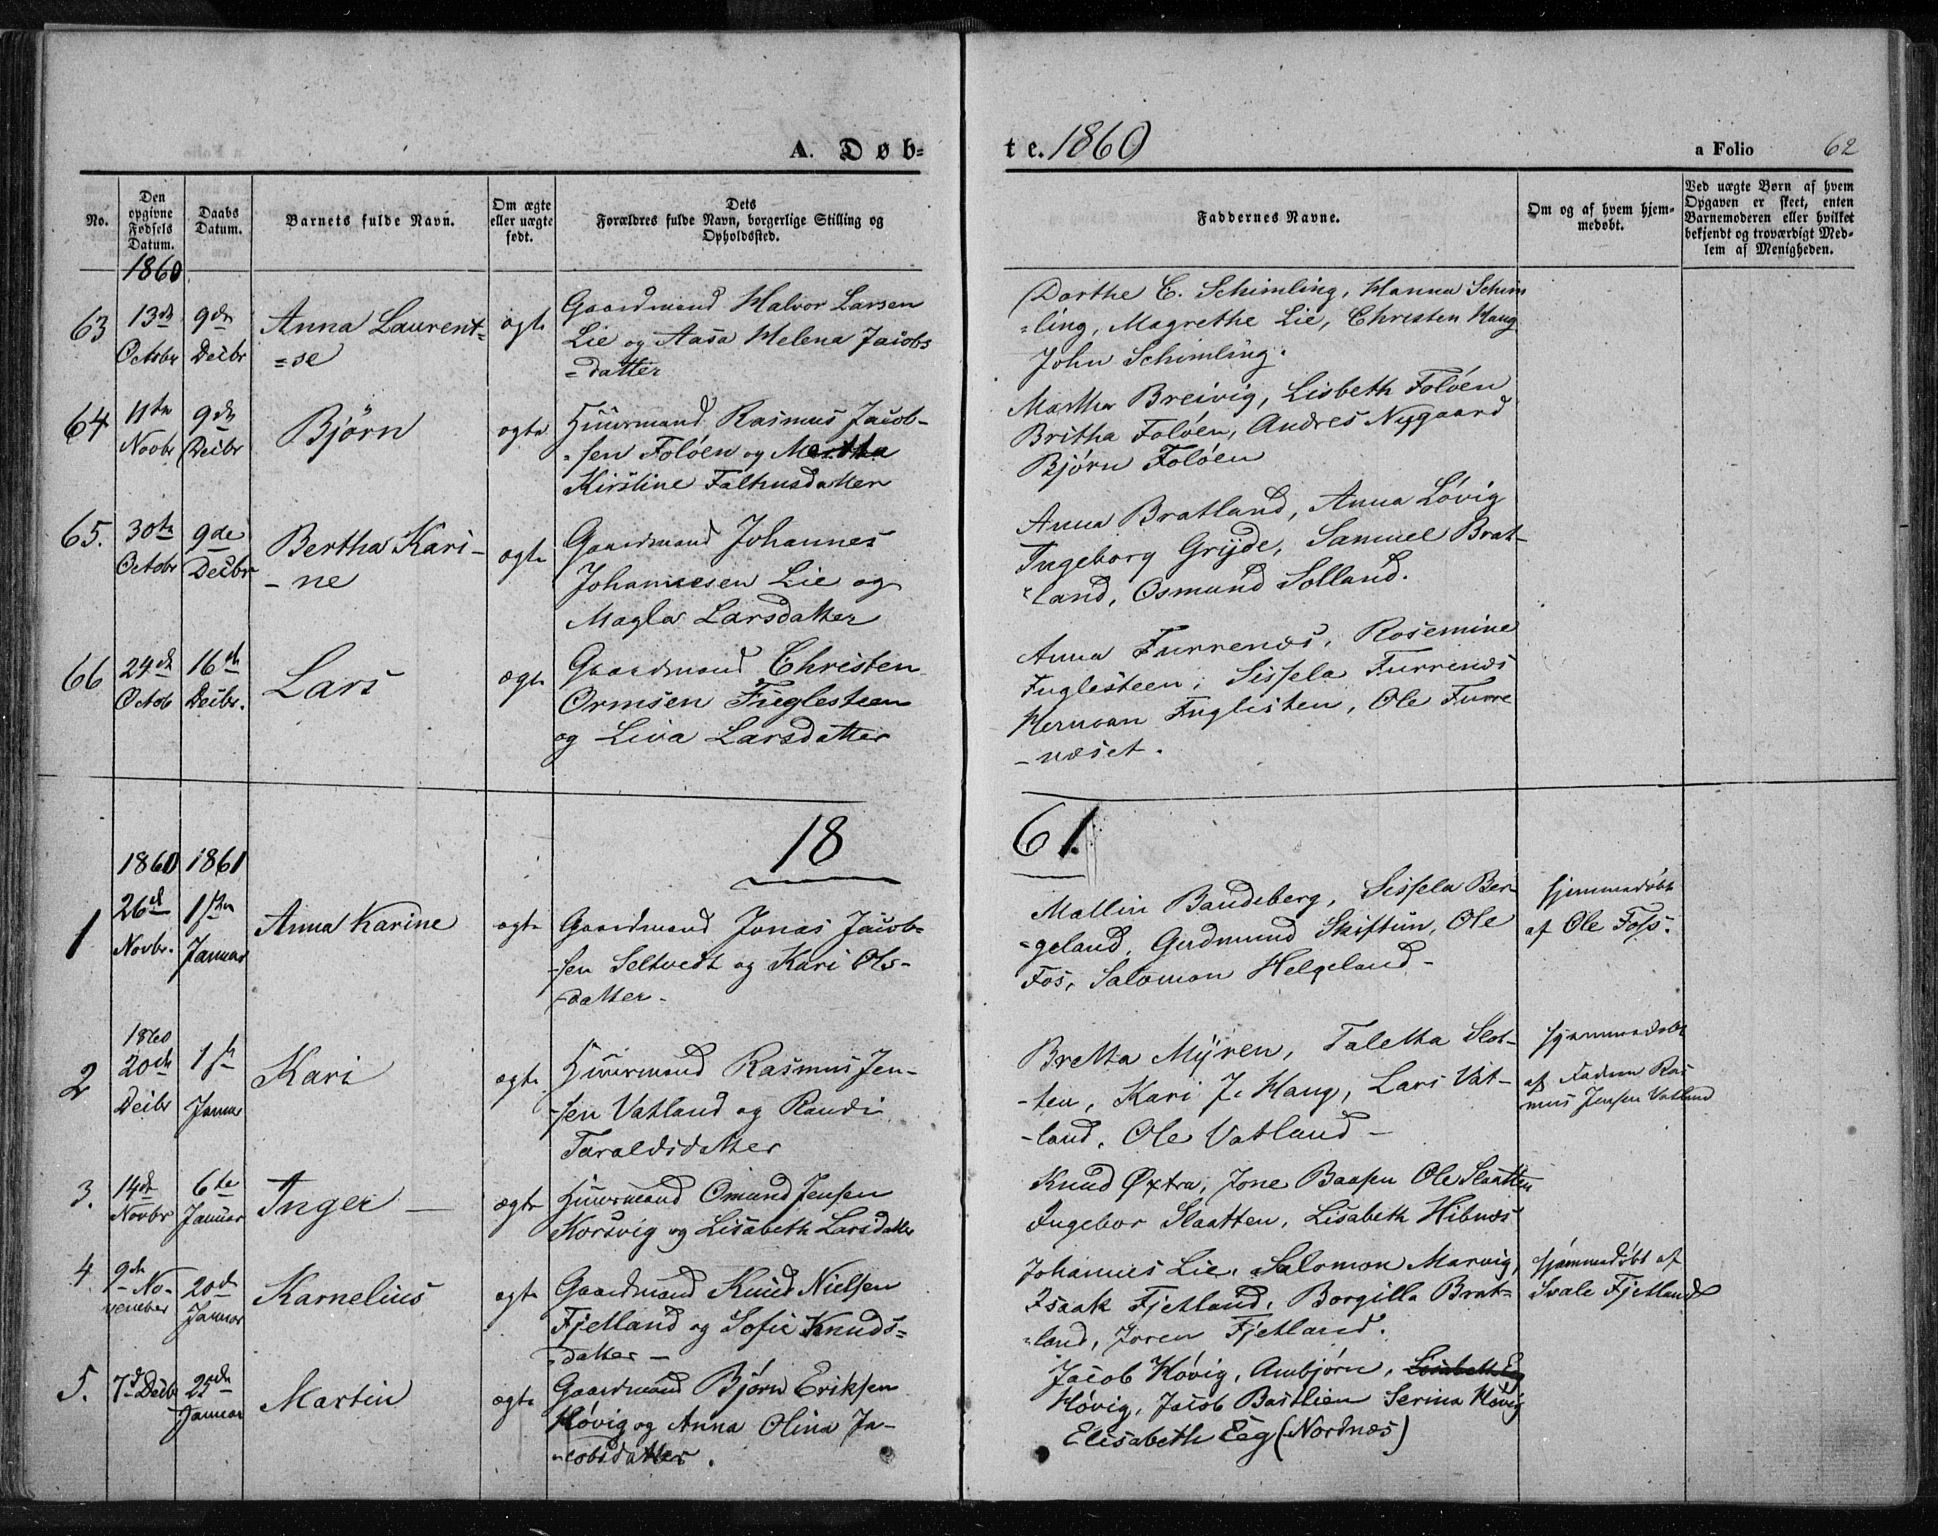 A. Døb-
te. 1860
a Folio 62
No.
Den opgivne Fødsels Datum.
Daabs Datum.
Barnets fulde Navn.
Om ægte eller uægte født.
Dets Forældres fulde Navn, borgerlige Stilling og Opholdssted.
Faddernes Navne.
Om og af hvem hjemmedøbt.
Ved uægte Børn af hvem Opgaven er skeet, enten Barnemoderen eller hvilket bekjendt og troværdigt Medlem af Menigheden.
1860
63
13de Octobr
9de Decbr
Anna Laurent-
=se
ægte
Gaardmand Halvor Larsen
Lie og Aasa Helena Jacobs
=datter
Dorthe C. Schimling, Hanna Schim
=ling, Magrethe Lie, Christen Haug
John Schimling.
64
11te Novbr
9de Decbr
Bjørn
ægte
Huusmand Rasmus Jacob-
-sen Foløen og Martha
Kirstine Falhusdatter
Martha Breivig, Lisbeth Foløen
Britha Foløen, Andres Nygaard
Bjørn Foløen
65.
30te Octobr
9de Decbr
Bertha Kari-
-ne
ægte
Gaardmand Johannes
Johannesen Lie og
Magla Larsdatter
Anna Bratland, Anna Løvig
Ingeborg Grijde, Samuel Brat-
land, Osmund Solland.
66
24de Octob
16de Decbr.
Lars
ægte
Gaardmand Christen
Ormsen Fuglesteen
og Liva Larsdatter
Anna Furrenæs, Rosemine
Fuglesteen, Sissela Furrenæs
Herman Fuglisten, Ole Furre
-næset.
18
61.
1860
1861
1
26de Novbr.
1ste Januar
Anna Karine
ægte
Gaardmand Jonas Jacob-
-sen Seltvedt og Kari Ols-
datter.
Mallin Bandsberg, Sissela Ber
-geland, Gudmund Skiftun, Ole
Fos, Salomon Helgeland-
hjemmedøbt
af Ole Foss.
2
1860
20de Decbr
1ste Januar
Kari
ægte
Huusmand Rasmus Jen-
-sen Vatland og Randi
Taraldsdatter
Bretta Mÿren, Taletha Slot-
-ten, Kari J. Haug, Lars Vat-
-land, Ole Vatland-
hjemmedøbt
af Faderen Ras
mus Jensen Vatland
3.
14de Novbr
6te Januar
Inger
ægte
Huusmand Omund Jensen
Korsvig og Lisabeth Larsdatter
Knud Øxtra, Jone Baasen Ole Slaatten
Ingebor Slaatten, Lisabeth Hibnæs
4
9de No-
vember
20de Januar
Karnelius
ægte
Gaardmand Knud Nielsen
Fjetland og Sofie Knuds=
=datter-
Johannes Lie, Salomon Marvig,
Isaak Fjetland, Borgilla Brat-
=land, Joren Fjetland.
hjemmedøbt af
Svale Fjetland
5.
7de Decbr
25de Januar
Martin
ægte
Gaardmand Bjørn Eriksen
Høvig og Anna Olina Ja-
-cobsdatter.
Jacob Høvig, Ambjørn, Lisabeth Eeg
Høvig, Jacob Bastlien Serina Høvig
Elisabeth Eeg (Nordnæs)